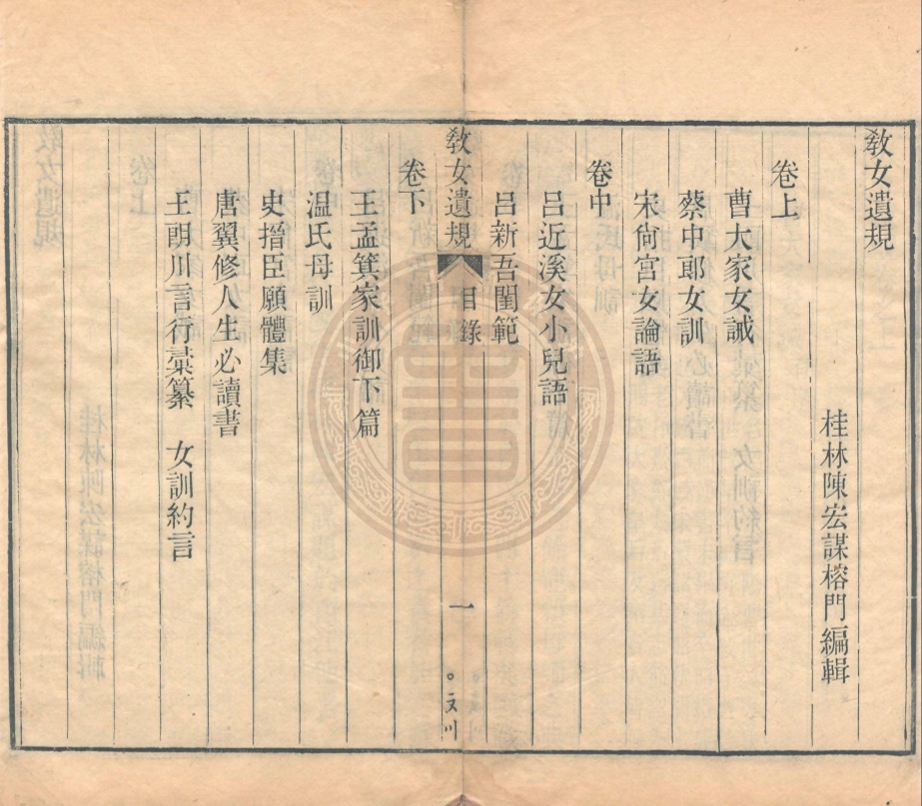 敎女遺規
桂林陳宏謀榕門編輯
卷上
曹大家女誡
蔡中郞女訓
宋尙宮女論語
卷中
呂近溪女小兒語
呂新吾閨範
敎女遺規 目錄 一
卷下
王孟箕家訓御下篇
温氏母訓
史搢臣願體集
唐翼修人生必讀書
王朗川言行彙纂 女訓約言